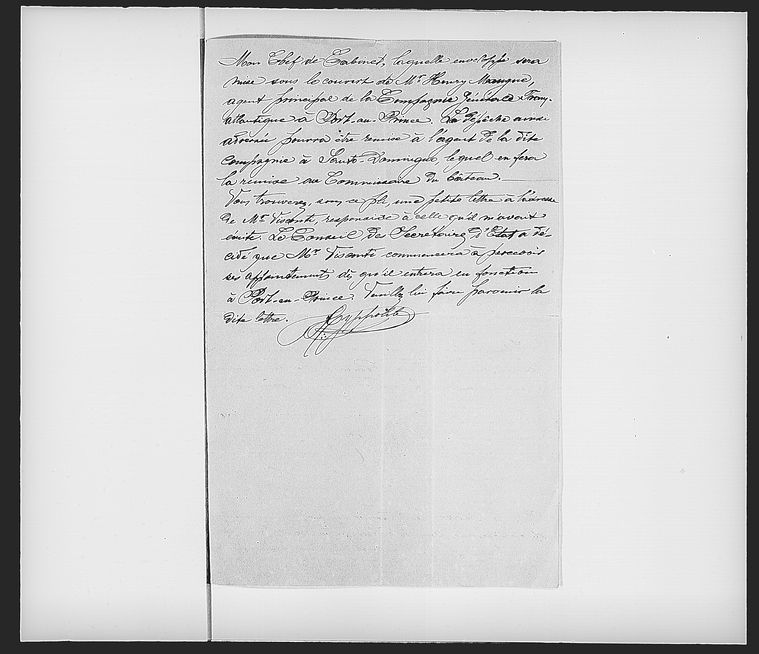 Mon Chef de Cabinet, laquelle enveloppe sera
mise sous le couvert de Mr Henry
agent principal de la Compagnie Générale Trans-
atlantique à Port-au-Prince. La dépêche ainsi
adressée pourra être remise à l'agent de la dite
Compagnie à Santo-Domingo, lequel en fera
la remise au Commissaire du bateau.
Vous trouverez, sous ce pli, une petite lettre à l'adresse
de Mr Visconti, responsive à celle qu'il m'avait
écrite. Le Conseil des Secrétaires d'Etat a dé-
cidé que Mr Visconti commencera à percevoir
ses appointements dès qu'il entrera en fonction
à Port-au-Prince. Veuillez lui faire parvenir la
dite lettre.
Hyppolite